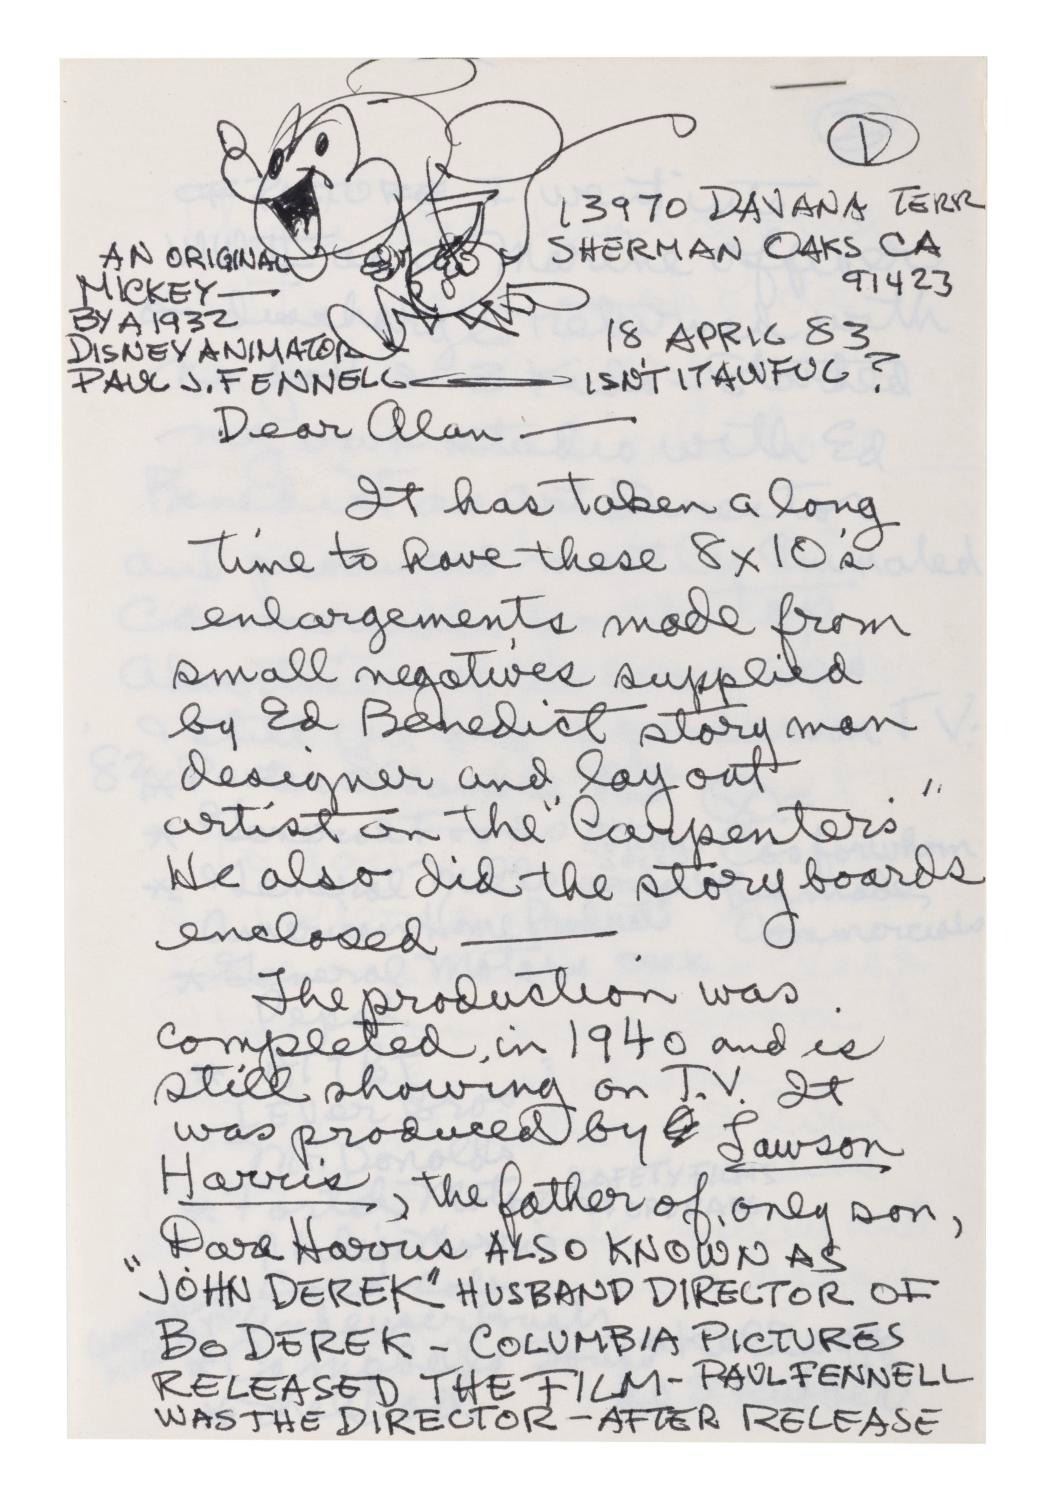 1
13970 DAVANA TERR
SHERMAN OAKS CA
91423
18 APRIL 83
AN ORIGINAL
MICKEY —
BY A 1932
DISNEY ANIMATOR
PAUL J. FENNELL — ISN'T IT AWFUL?
Dear Alan —
It has taken a long
time to have these 8x10's
enlargements made from
small negatives supplied
by Ed Benedict story man
designer and lay out
artist on the "Carpenters"
He also did the story boards
enclosed —
The production was
completed in 1940 and is
still showing on T.V. It
was produced by Lawson
Harris, the father of only son,
Dare Harris ALSO KNOWN AS
"JOHN DEREK" HUSBAND DIRECTOR OF
BO DEREK - COLUMBIA PICTURES
RELEASED THE FILM - PAUL FENNELL
WAS THE DIRECTOR - AFTER RELEASE